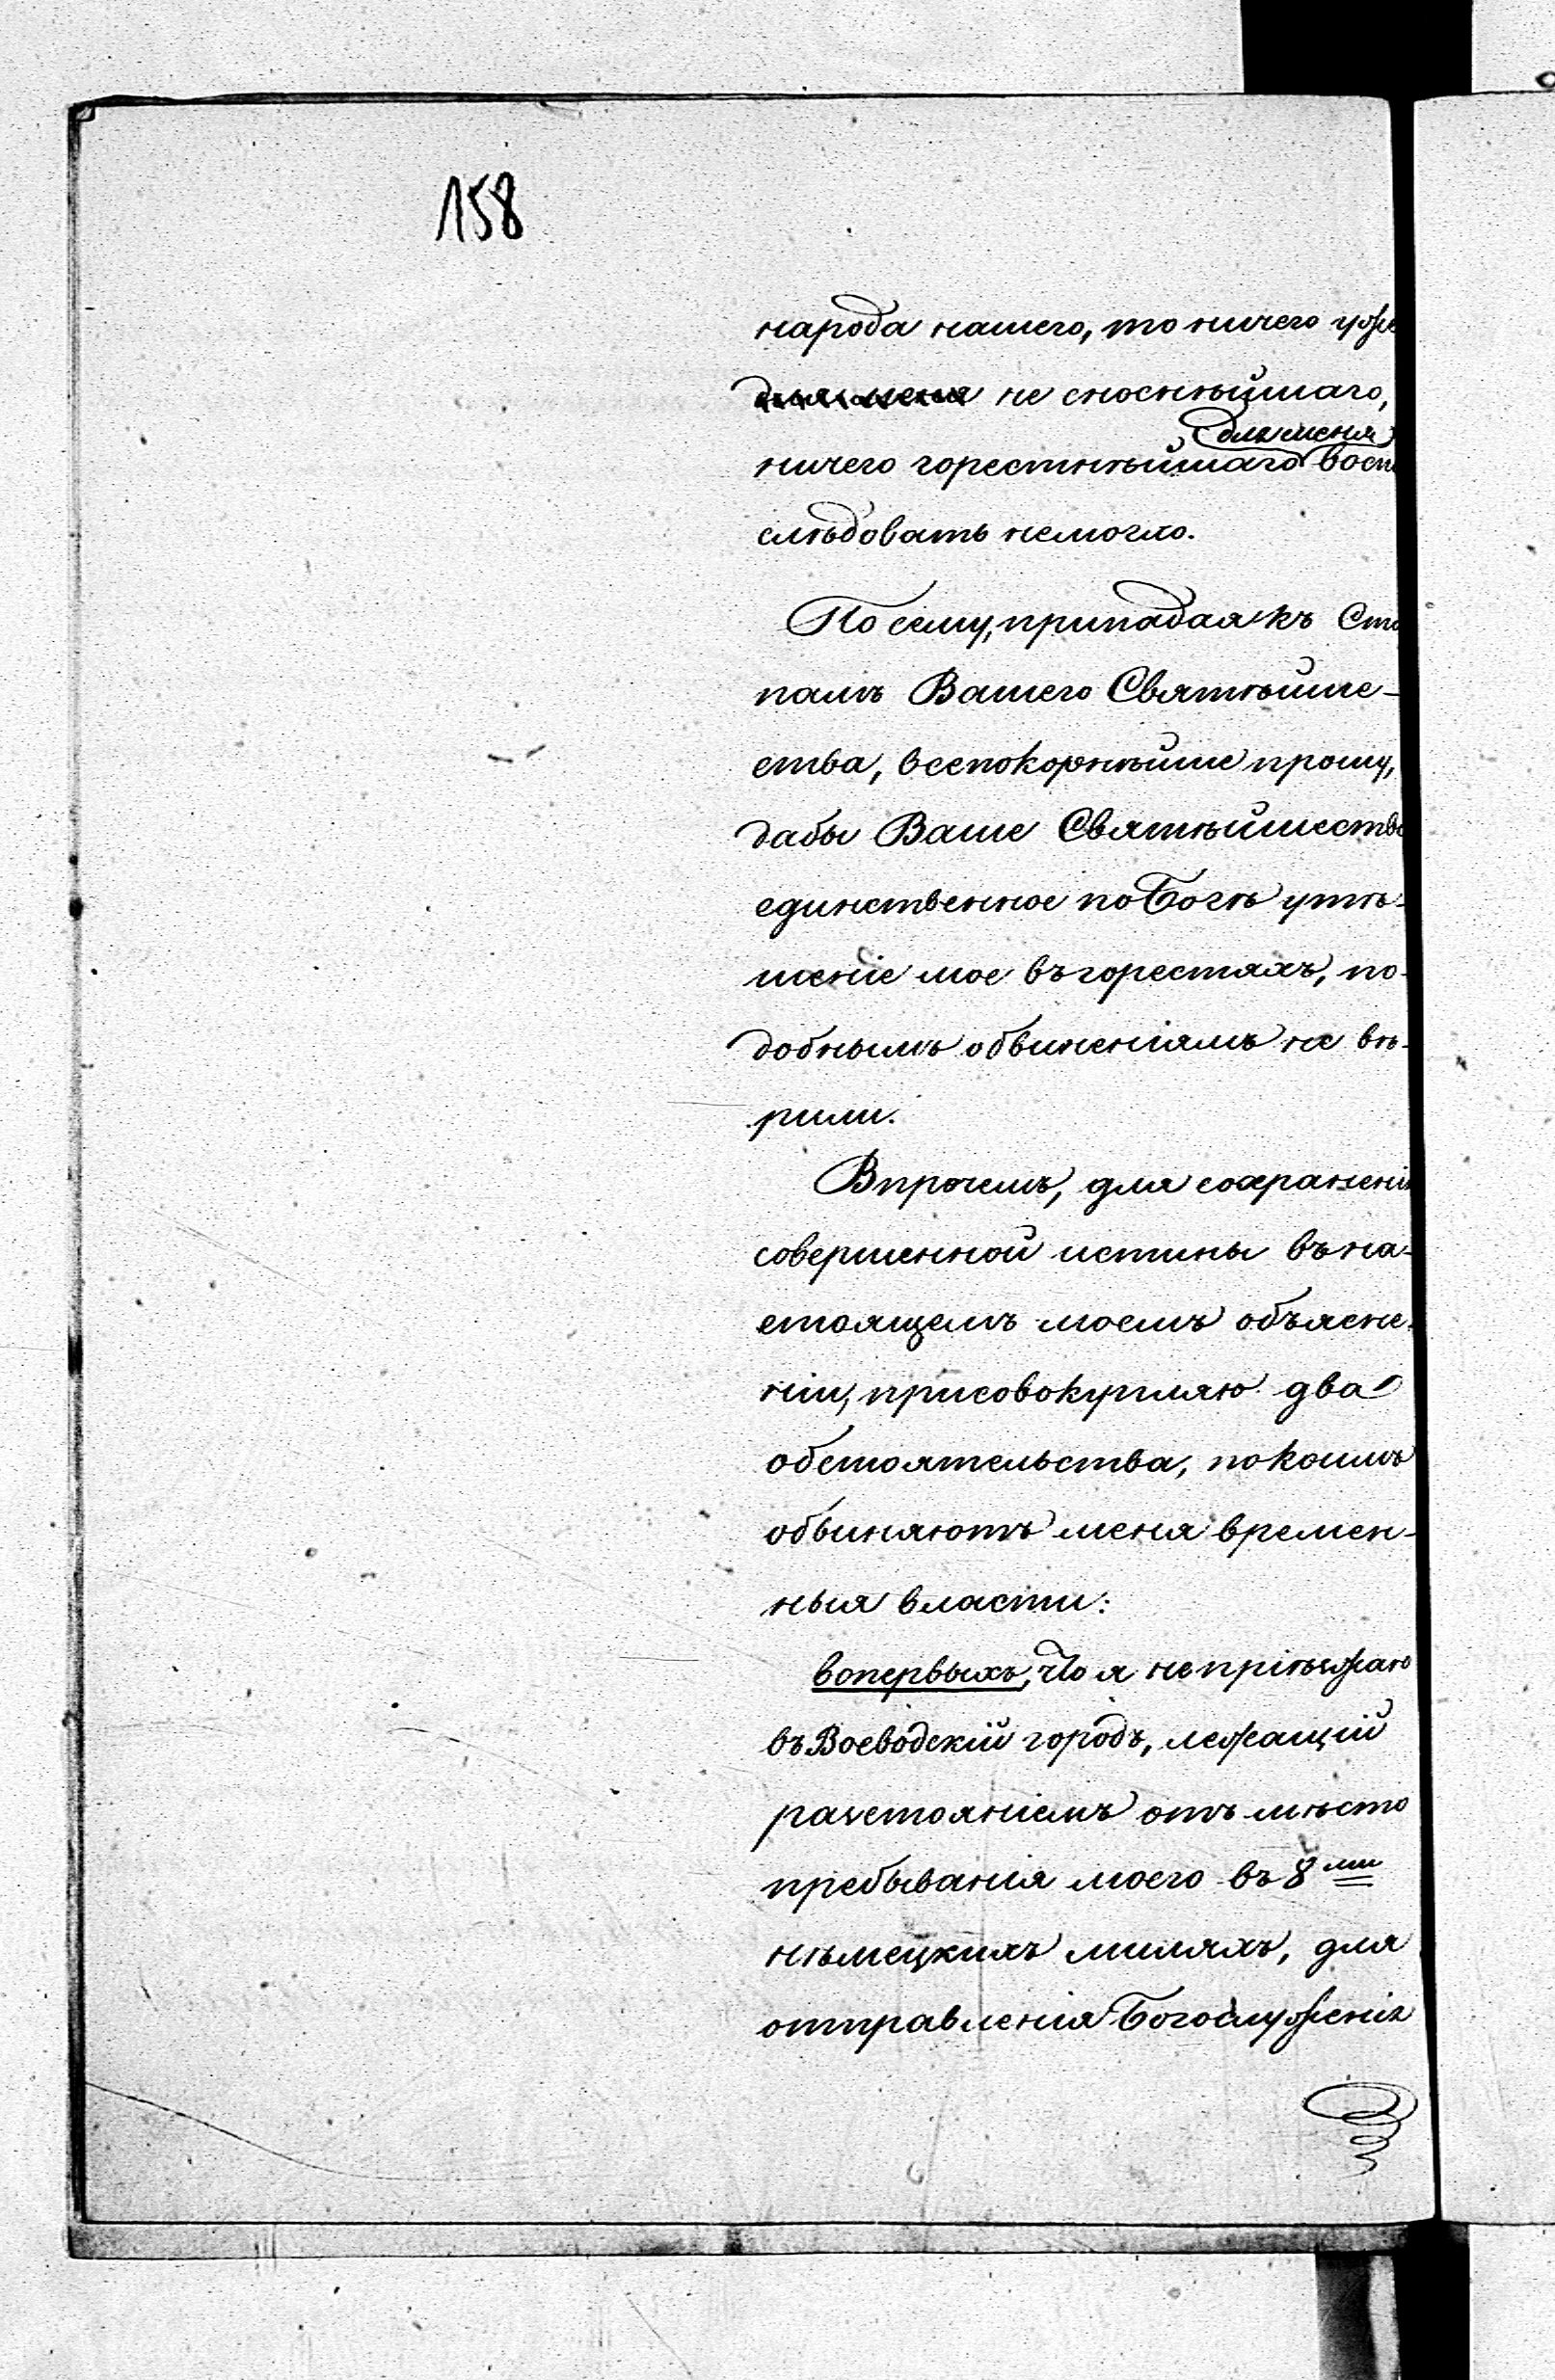 158
народа нашего, то ничего уже
для меня не сноснѣйшаго,
для меня
ничего горестнѣйшаго восп
слѣдовать немогло.
По сему, припадая къ Сто
памъ Вашего Святѣйше-
ства, всепокорнѣйше прошу,
дабы Ваше Святѣйшество
единственное по Богѣ утѣ-
шеніе мое въ горестяхъ, по-
добнымъ обвиненіямъ не вѣ-
рили.
Впрочемъ, для сохраненія
совершенной истины въ на-
стоящемъ моемъ объясне-
ніи, присовокупляю два
обстоятельства, по коимъ
обвиняютъ меня времен-
ныя власти:
вопервыхъ, что я непріѣзжаю
въ Воеводскій городъ, лежащій
разстояніемъ отъ мѣсто
пребыванія моего въ 8ми
нѣмецкихъ миляхъ, для
отправленія Богослуженія